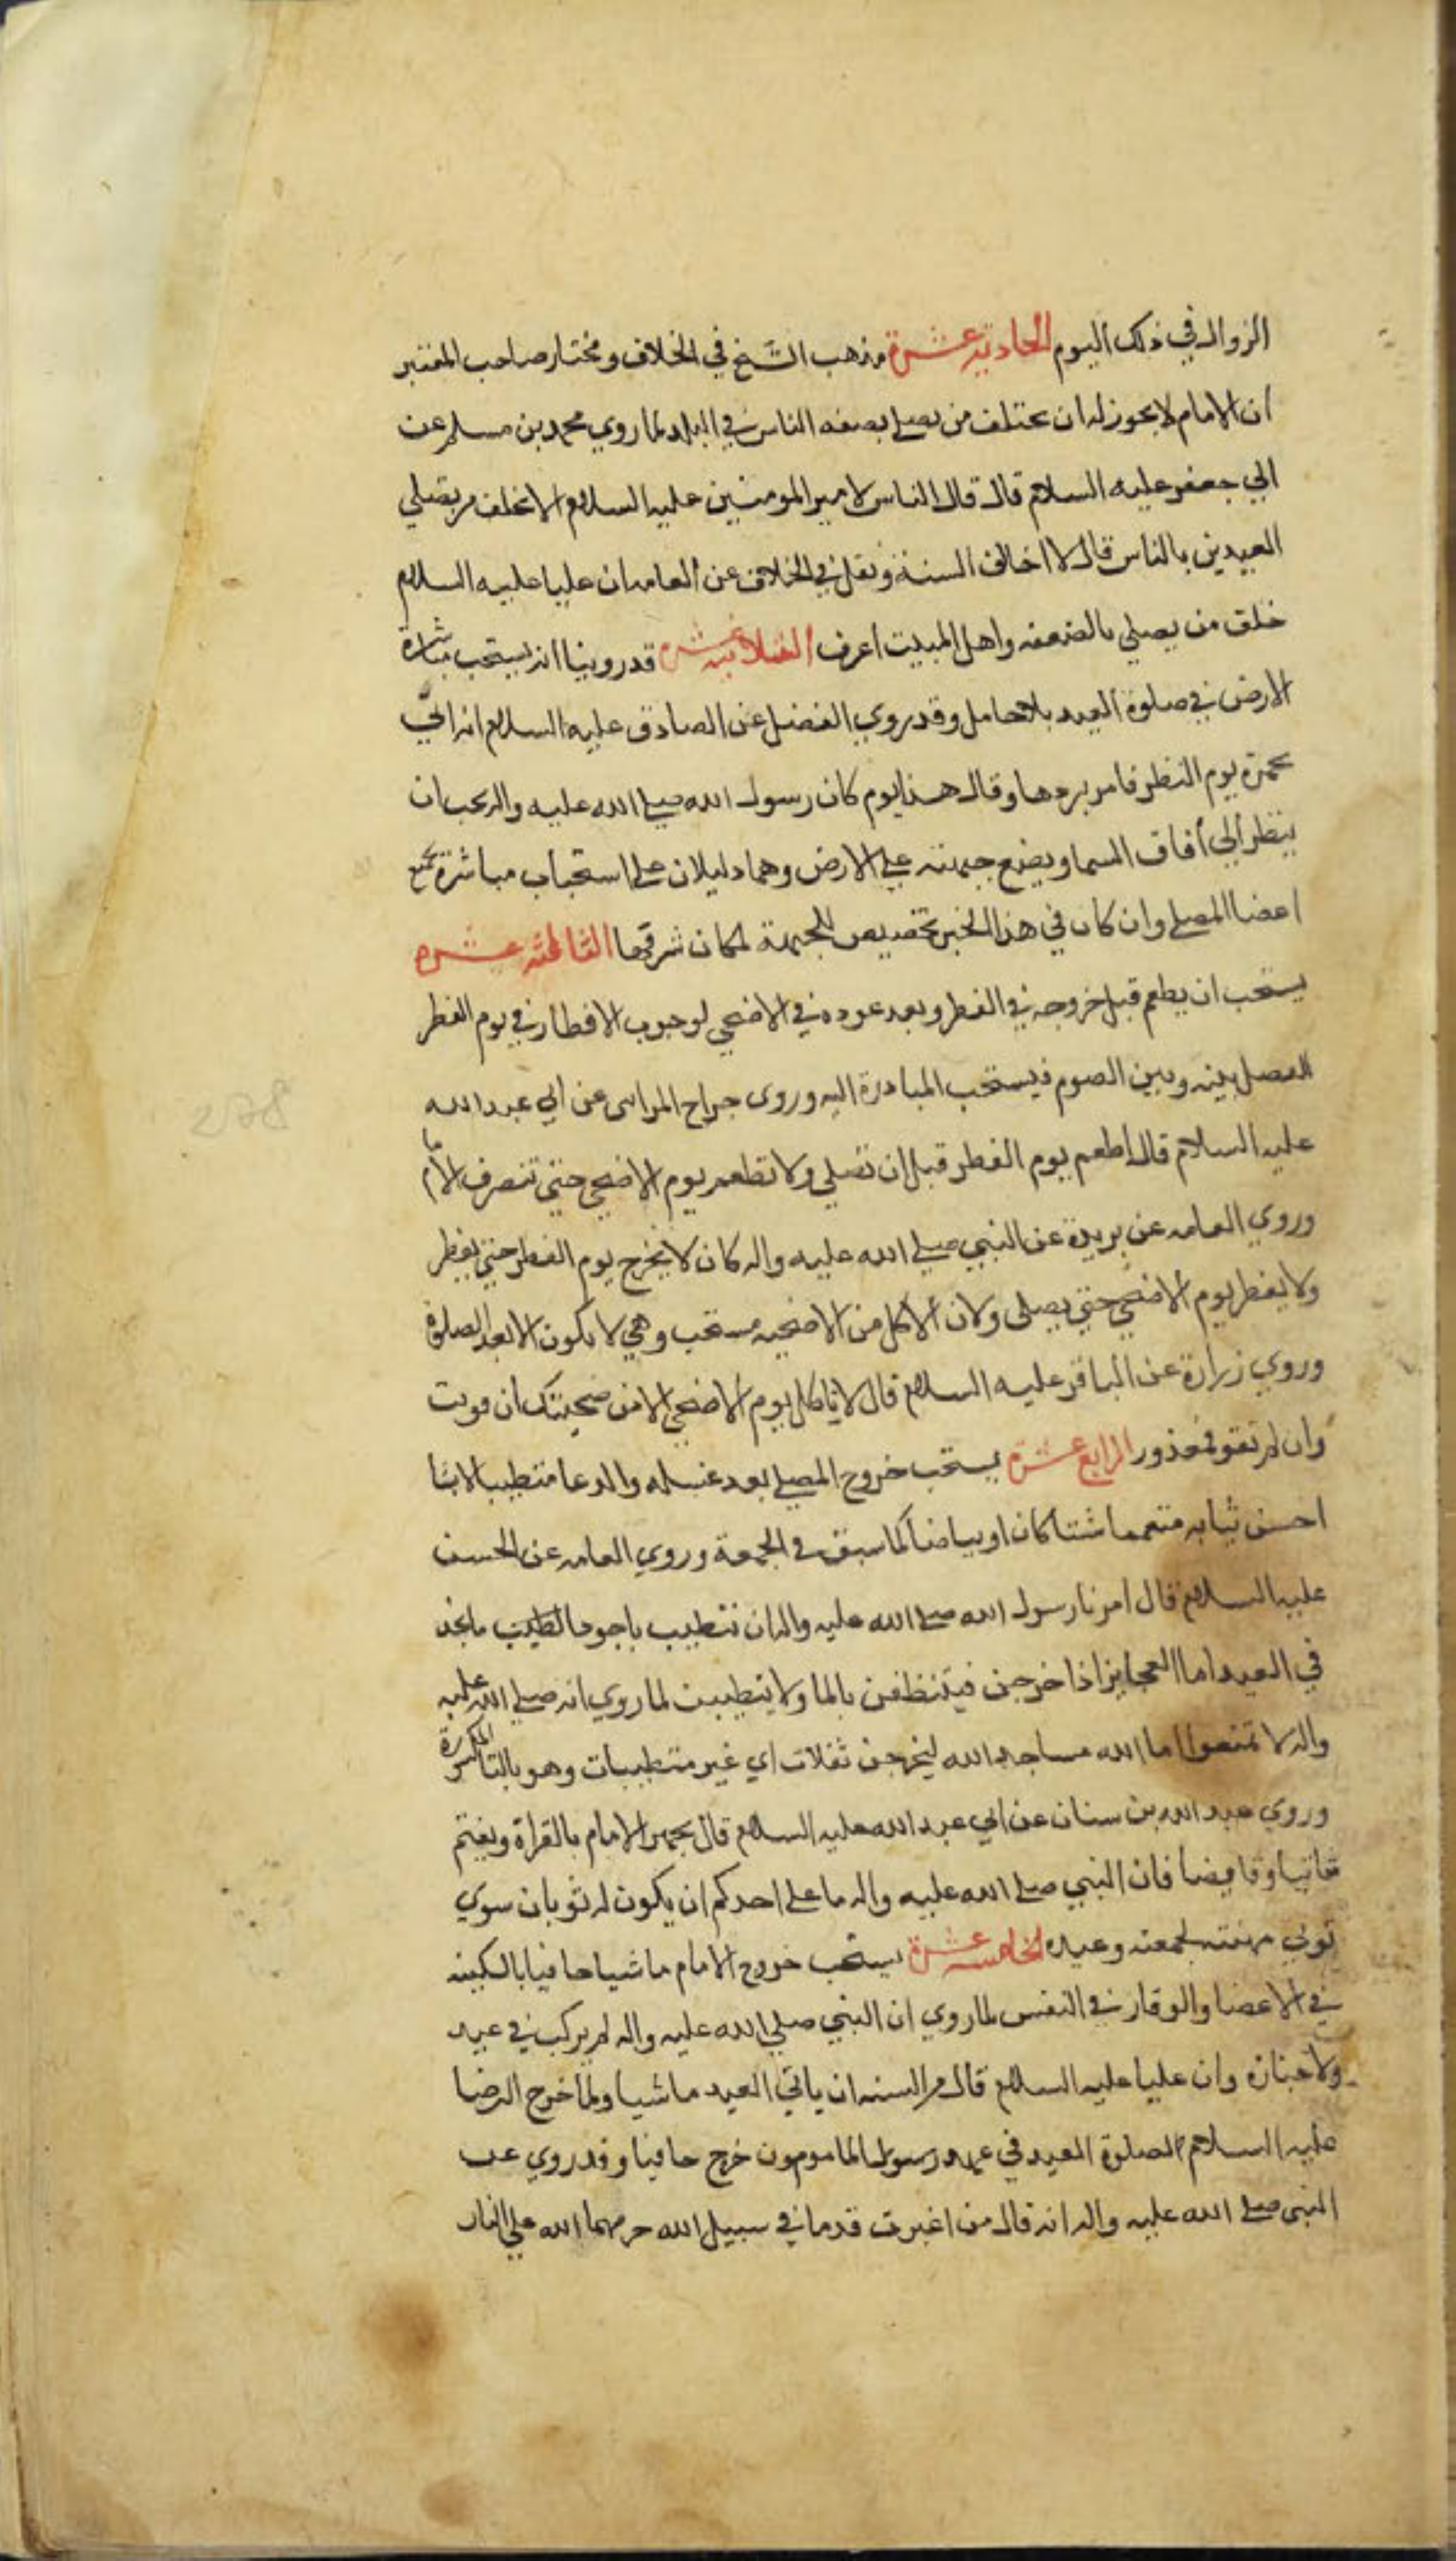 الزوال في ذلك اليوم الحادية عشرة مذهب الشيخ في الخلاف ومختار صاحب المعتبر
ان الامام لا يجوز له ان يختلف من يصلي بضعفه الناس في البلد لما روي محمد بن مسلم عن
ابي جعفر عليه السلام قال قال الناس لامير المومنين عليه السلام الا تخلف من يصلي
العيدين بالناس قال لا اخالف السنة ونقل في الخلاف عن العامه ان عليا عليه السلام
خلف من يصلي بالضعفه واهل البيت اعرف الثانية عشرة قد روينا انه يستحب مباشرة
الارض في صلوة العيد بلا حامل وقد روي الفضل عن الصادق عليه السلام انه اتي
بخمرة يوم الفطر فامر بردها وقال هذا يوم كان رسول الله صلي الله عليه واله يحب ان
ينظر الي افاق السما ويضع جبهته علي الارض وهما دليلان علي استحباب مباشرة جميع
اعضا المصلي وان كان في هذا الخبر تخصيص للجبهة لمكان شرفها الثالثة عشره
يستحب ان يطعم قبل خروجه في الفطر وبعد عوده في الاضحي لوجوب الافطار في يوم الفطر
الفصل بينه وبين الصوم فيستحب المبادرة اليه وروى جراح المداىى عن ابي عبد الله
عليه السلام قال اطعم يوم الفطر قبل ان تصلي ولا تطعم يوم الاضحي حتي تنصرف الامام
وروي العامه عن بريدة عن النبي صلي الله عليه واله كان لا يخرج يوم الفطر حتي يفطر
ولا يفطر يوم الاضحي حتي يصلى ولان الاكل من الاضحيه مستحب وهي لا يكون الا بعد الصلوة
وروي زرارة عن الباقر عليه السلام قال لا تاكل يوم الاضحي الا من ضحيتك ان قويت
وان لم تقو فمعذور الرابع عشرة يستحب خروج المصلي بعد غسله والدعا متطيبا لابسا
احسن ثيابه متعمما شتا كان او بياضا كما سبق في الجمعة وروي العامه عن الحسن
عليه السلام قال امرنا رسول الله صلي الله عليه واله ان نتطيب باجود الطيب ما نجد
في العيد اما العجايز اذا خرجن فيتنظفن بالما ولا يتطيبن لما روي انه صلي الله عليه
واله لا تمنعوا اما الله مساجد الله ليخرجن تفلات اي غير متطيبات وهو بالتا المكسورة
وروي عبد الله بن سنان عن ابي عبد الله عليه السلام قال يجهر الامام بالقراة ويعتم
شاتيا وقايضا فان النبي صلي الله عليه واله ما علي احدكم ان يكون له ثوبان سوي
ثوبي مهنته لجمعته وعيده الخامسه عشرة يستحب خروج الامام ماشيا حافيا بالسكينه
في الاعضا والوقار في النفس لما روي ان النبي صلي الله عليه واله لم يركب في عيد
ولا جنازة وان عليا عليه السلام قال من السنه ان ياتي العيد ماشيا ولما خرج الرضا
عليه السلام لصلوة العيد في عهد رسول المامومون خرج حافيا وقد روي عن
النبي صلي الله عليه واله انه قال من اغبرت قدما في سبيل الله حرمهما الله علي النار